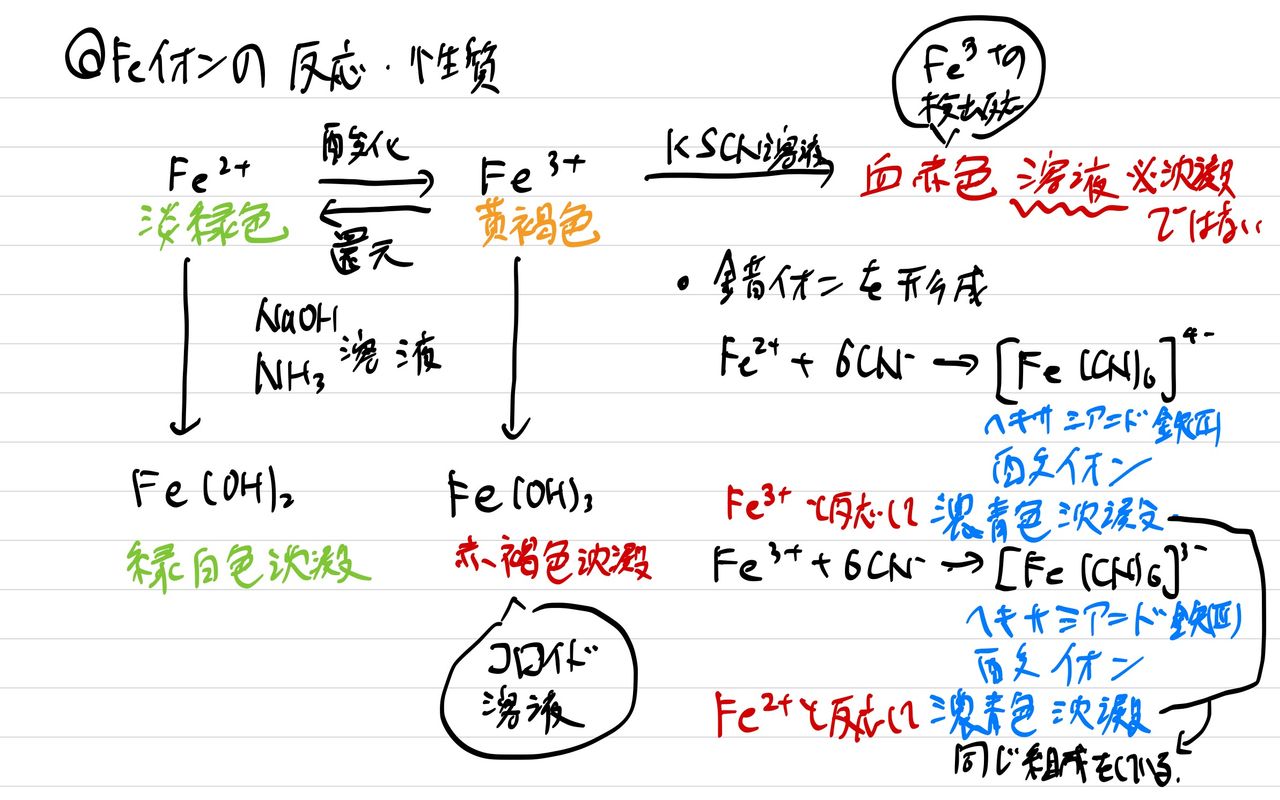 @Feイオンの 反応・性質
Fe³⁺の
検出反応
Fe²⁺ 酸化 Fe³⁺ KSCN溶液 血赤色 溶液 ※沈澱
ではない
淡緑色 還元 黄褐色
・錯イオンを形成
NaOH
NH₃ 溶液
Fe²⁺ + 6CN⁻ → [Fe(CN)₆]⁴⁻
ヘキサシアニド鉄(II)
酸イオン
Fe³⁺と反応して 濃青色沈澱
Fe(OH)₂ Fe(OH)₃
緑白色沈澱 赤褐色沈澱
Fe³⁺ + 6CN⁻ → [Fe(CN)₆]³⁻
ヘキサシアニド鉄(III)
酸イオン
コロイド
溶液
Fe²⁺と反応して 濃青色沈澱
同じ組成をしている.